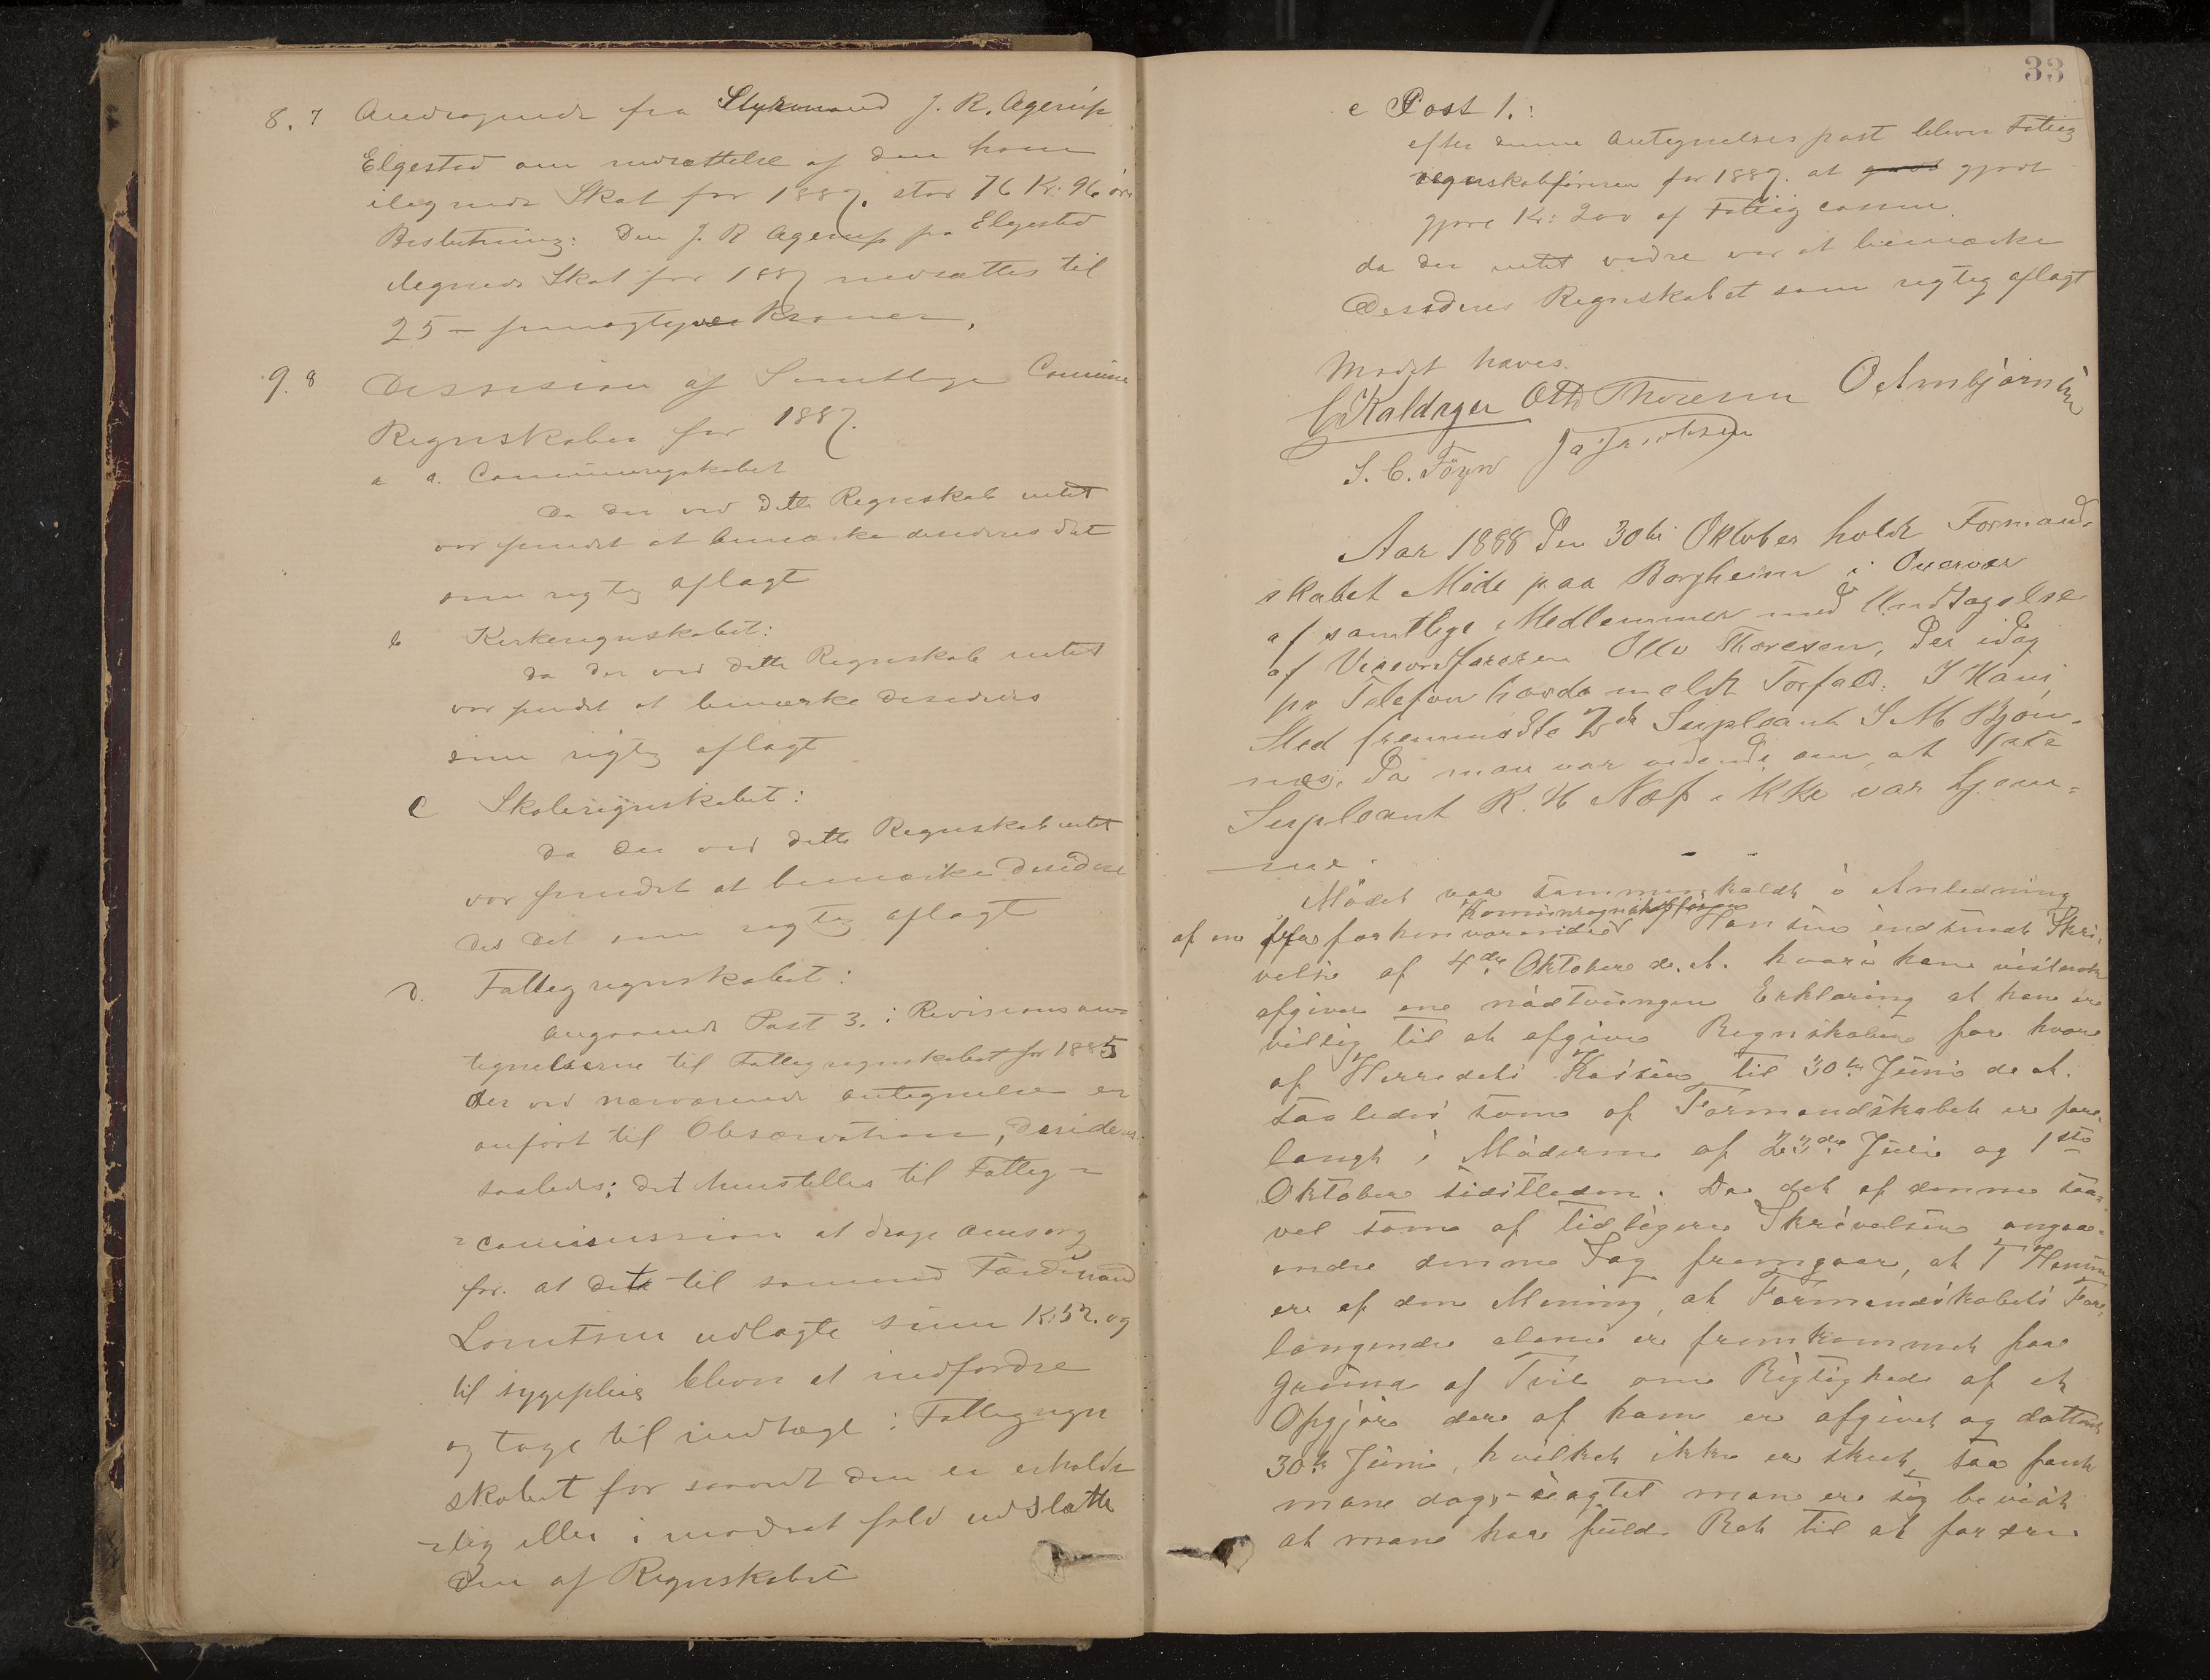 8. 7 Andragende fra Styrmand J. R. Agerup
Elgested om nedsættelse af den ham
ilegnede Skat for 1887. stor 76 Kr. 96 öre
Beslutning: Den J. R Agerup fra Elgested
ilegnede Skat for 1887 nedsættes til
25 – femogtyve Kroner.
9. 8 Desision af Samtlige Commune
Regnskaber for 1887.
a a. Communeregnskabet
Da der ved dette Regnskab intet
var fundet at bemærke desideres det
som rigtig aflagt
b Kirkeregnskabet:
da der ved dette Regnskab intet
var fundet at bemærke desideres
som rigtig aflagt
c Skoleregnskabet:
da der ved dette Regnskab intet
var fundet at bemærke deside
des det som rigtig aflagt
d. Fattegregnskabet:
angaaende Post 3. i Revisions an-
tegnelserne til Fattegregnskabet for 1885
der ved nærværende antegnelse er
anfört til Observation, desideres
saaledes: det henstilles til Fatteg-
-commission at drage omsorg
for at dette til sømand Færdinand
Lorntsen udlagte sum Kr. 52. og
til sygepleie bleven at indfordre
og tage til indtægt i Fattegregn
skabet for saavidt den er erholde
-lig eller i modsat fald udslætte
den af Regnskabet
33
e Post 1.:
efter denne Antegnelses post bliver Fatteg
regnskabføreren for 1887. at godt gjort
gjøre Kr: 200 af Fattigcassen.
da der intet vidre var at bemærke
desideres Regnskabet som rigtig aflagt
Mødet hæves.
C Kaldager Otto Thoresen O Arnbjørnsen
S. C. Föyn Ja Jacobsen
Aar 1888 Den 30te Oktober holdt Formand-
skabet Möde paa Borgheim i Overvær
af samtlige Medlemmer med Undtagelse
af Viceordføreren Otto Thoresen, der idag
pr Telefon havde meldt Forfald. I Hans
Sted fremmødte 2den Supleant S M Bjøn-
næs. Da man var vidende om, at 1ste
Supleant R. H Næss ikke var hjem-
me.
Mödet var sammenkaldt i Anledning
Komuneregnskabsförer
af en fra forhenværende Hansen indsendt Skri-
velse af 4de Oktober d. A. hvori han vistnok
afgiver en nödtvungen Erklæring at han er
villig til at afgive Regnskaber for hver
af Herredets Kasser til 30te Juni d A.
saaledes som af Formandskabet er for-
langt i Möderne af 23de Juli og 1ste
Oktober sidstleden. Da det af denne saa-
vel som af tidligere Skrivelser angaa-
ende denne Sag fremgaar, at T Hansen
er af den Mening, at Formandskabets For-
langende alene er fremkommet paa
Grund af Tvil om Rigtighed af et
Opgjör der af ham er afgivet og datteret
30te Juni, hvilket ikke er skeet, saa fandt
man dog, – uagtet man er sig bevidst
at man har fuld Ret til at fordre